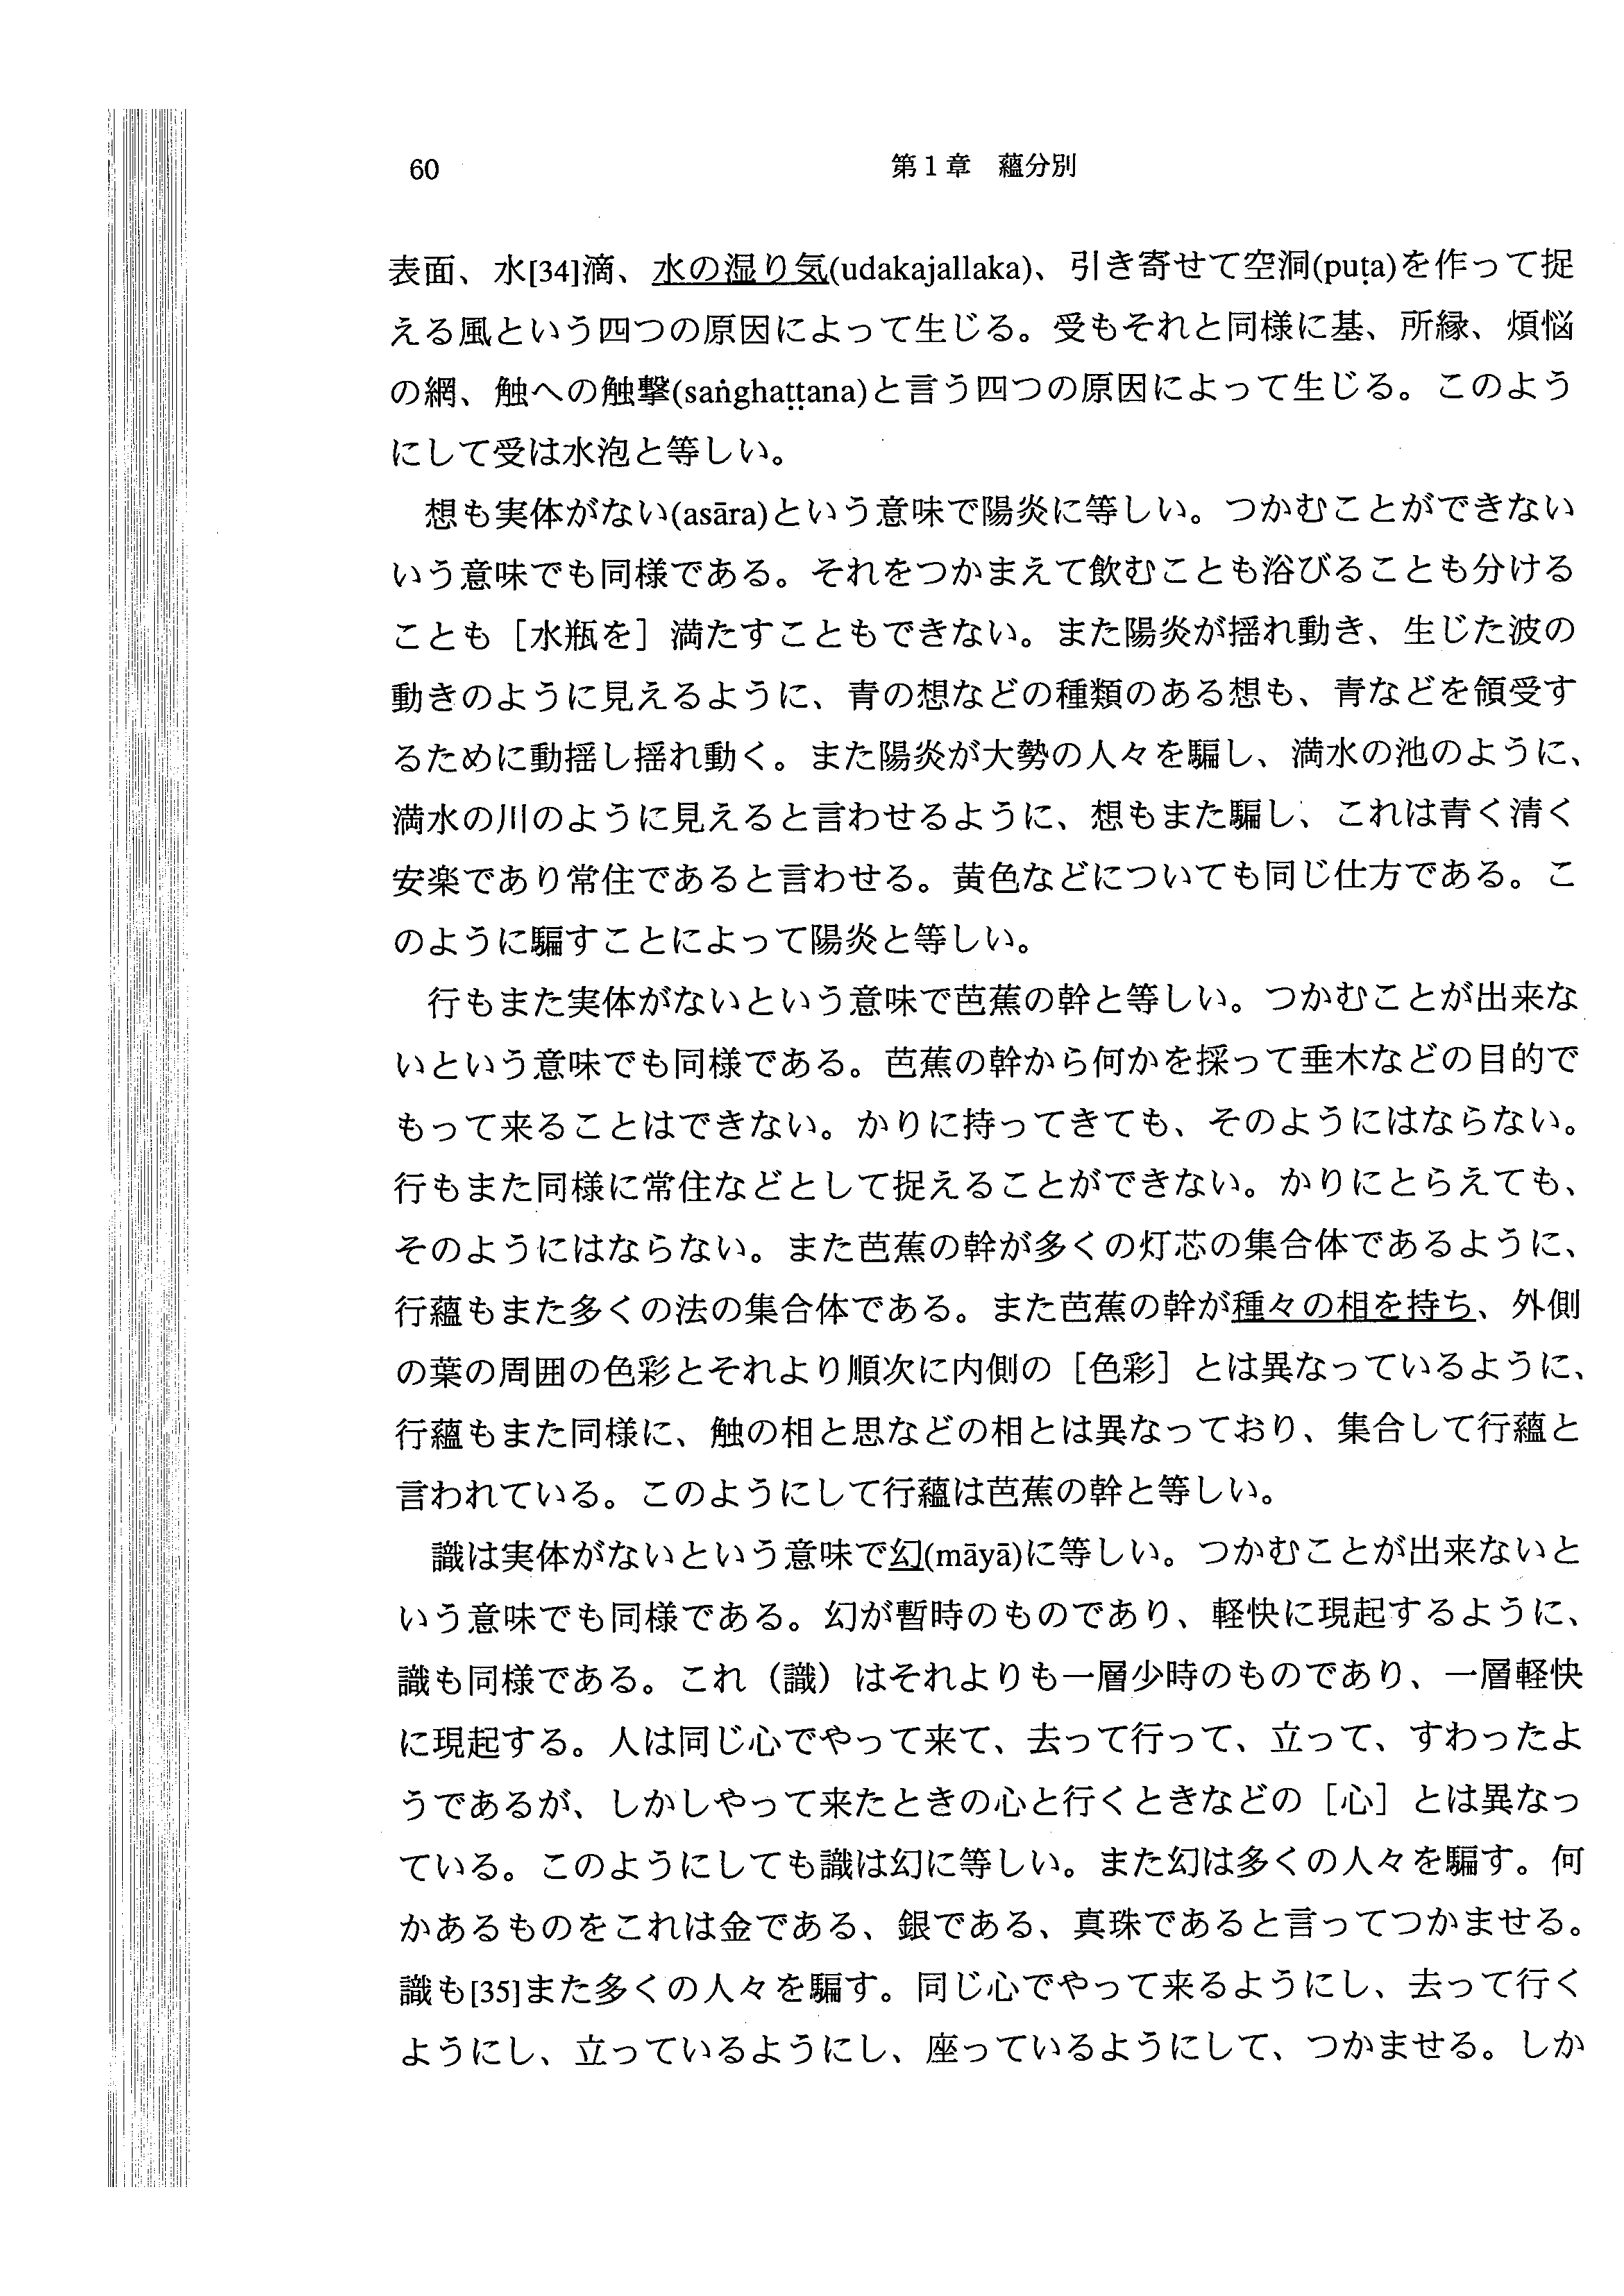 60
第1章　蘊分別
表面、水[34]滴、水の湿り気(udakajallaka)、引き寄せて空洞(puṭa)を作って捉
える風という四つの原因によって生じる。受もそれと同様に基、所縁、煩悩
の網、触への触撃(saṅghaṭṭana)と言う四つの原因によって生じる。このよう
にして受は水泡と等しい。
想も実体がない(asāra)という意味で陽炎に等しい。つかむことができない
いう意味でも同様である。それをつかまえて飲むことも浴びることも分ける
ことも［水瓶を］満たすこともできない。また陽炎が揺れ動き、生じた波の
動きのように見えるように、青の想などの種類のある想も、青などを領受す
るために動揺し揺れ動く。また陽炎が大勢の人々を騙し、満水の池のように、
満水の川のように見えると言わせるように、想もまた騙し、これは青く清く
安楽であり常住であると言わせる。黄色などについても同じ仕方である。こ
のように騙すことによって陽炎と等しい。
行もまた実体がないという意味で芭蕉の幹と等しい。つかむことが出来な
いという意味でも同様である。芭蕉の幹から何かを採って垂木などの目的で
もって来ることはできない。かりに持ってきても、そのようにはならない。
行もまた同様に常住などとして捉えることができない。かりにとらえても、
そのようにはならない。また芭蕉の幹が多くの灯芯の集合体であるように、
行蘊もまた多くの法の集合体である。また芭蕉の幹が種々の相を持ち、外側
の葉の周囲の色彩とそれより順次に内側の［色彩］とは異なっているように、
行蘊もまた同様に、触の相と思などの相とは異なっており、集合して行蘊と
言われている。このようにして行蘊は芭蕉の幹と等しい。
識は実体がないという意味で幻(māyā)に等しい。つかむことが出来ないと
いう意味でも同様である。幻が暫時のものであり、軽快に現起するように、
識も同様である。これ（識）はそれよりも一層少時のものであり、一層軽快
に現起する。人は同じ心でやって来て、去って行って、立って、すわったよ
うであるが、しかしやって来たときの心と行くときなどの［心］とは異なっ
ている。このようにしても識は幻に等しい。また幻は多くの人々を騙す。何
かあるものをこれは金である、銀である、真珠であると言ってつかませる。
識も[35]また多くの人々を騙す。同じ心でやって来るようにし、去って行く
ようにし、立っているようにし、座っているようにして、つかませる。しか